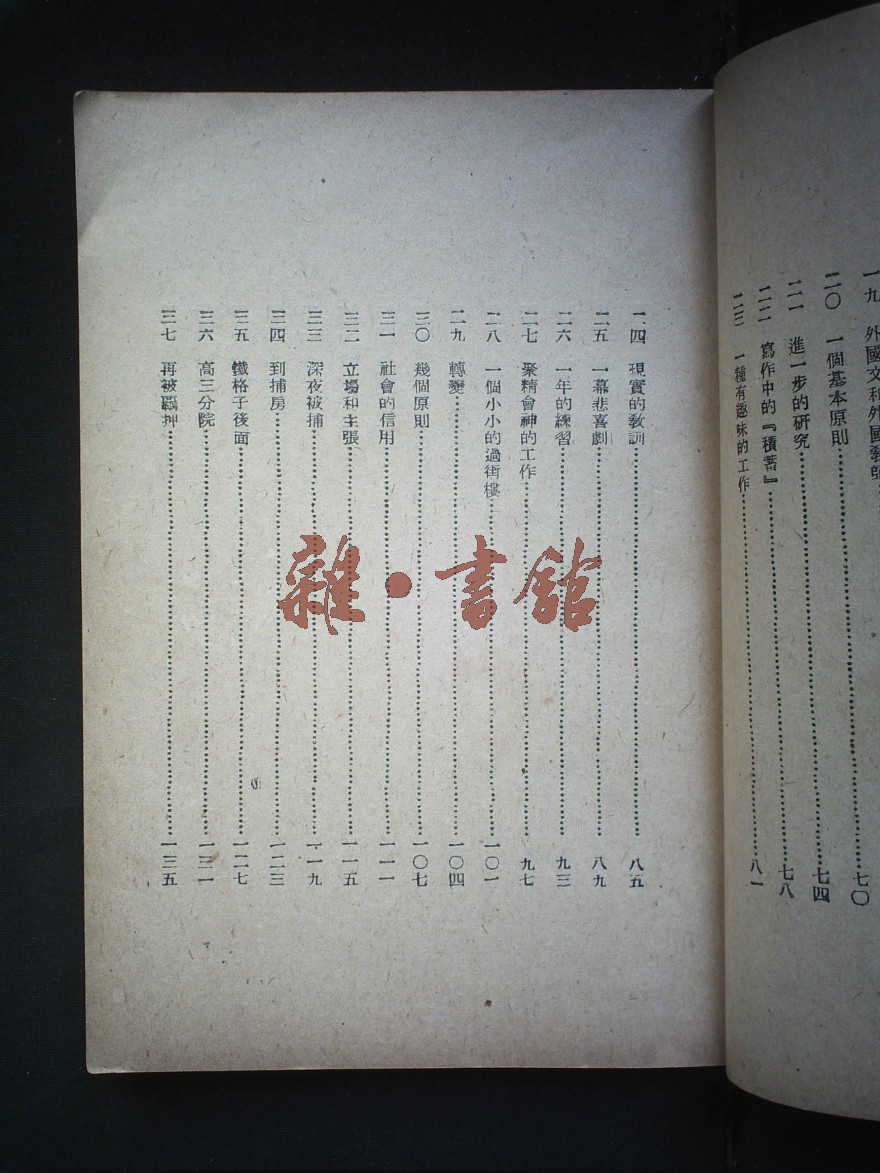 一九 外國文和外國教師
二〇 一個基本原則……七〇
二一 進一步的研究……七四
二二 寫作中的『積蓄』……七八
二三 一種有趣味的工作……八一
一四 現實的教訓……八五
二五 一幕悲喜劇……八九
二六 一年的練習……九三
二七 聚精會神的工作……九七
二八 一個小小的過街樓……一〇一
二九 轉變……一〇四
三〇 幾個原則……一〇七
三一 社會的信用……一一一
三二 立場和主張……一一五
三三 深夜被捕……一一九
三四 到捕房……一二三
三五 鐵格子後面……一二七
三六 高三分院……一三一
三七 再被羈押……一三五
雜·書館